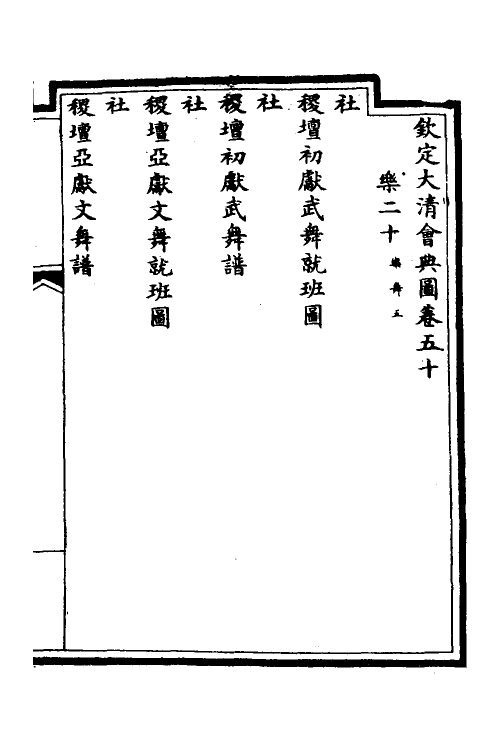 欽定大清會典圖卷五十
樂二十樂舞五
社
稷壇初獻武舞就班圖
社
稷壇初獻武舞譜
社
稷壇亞獻文舞就班圖
社
稷壇亞獻文舞譜